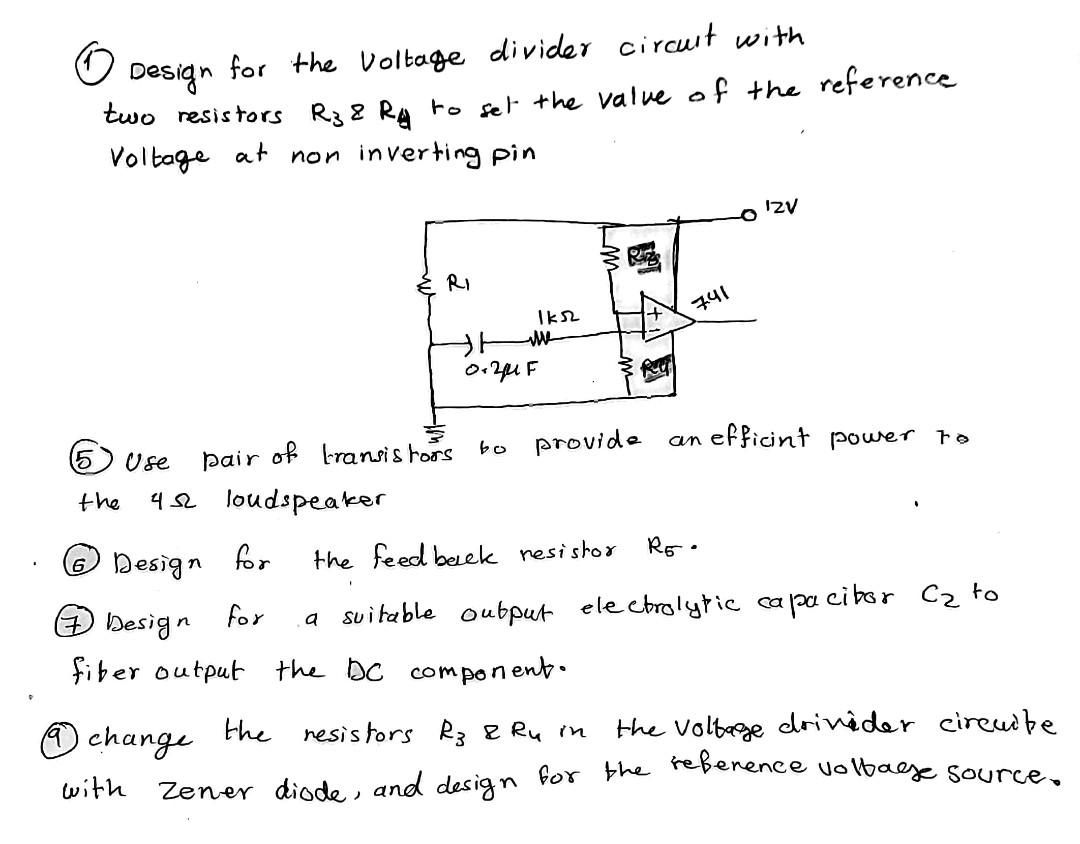 ① Design for the Voltage divider circuit with
two resistors R3 & R4 to set the value of the reference
Voltage at non inverting pin
12V
R3
R1
741
1kΩ
+
−
0.2μF
R4
⑤ Use pair of transistors to provide an efficint power to
the 4Ω loudspeaker
⑥ Design for the feedback resistor R5.
⑦ Design for a suitable output electrolytic capacitor C2 to
fiber output the DC component.
⑨ change the resistors R3 & R4 in the voltage drivider circuite
with Zener diode, and design for the reference voltage source.